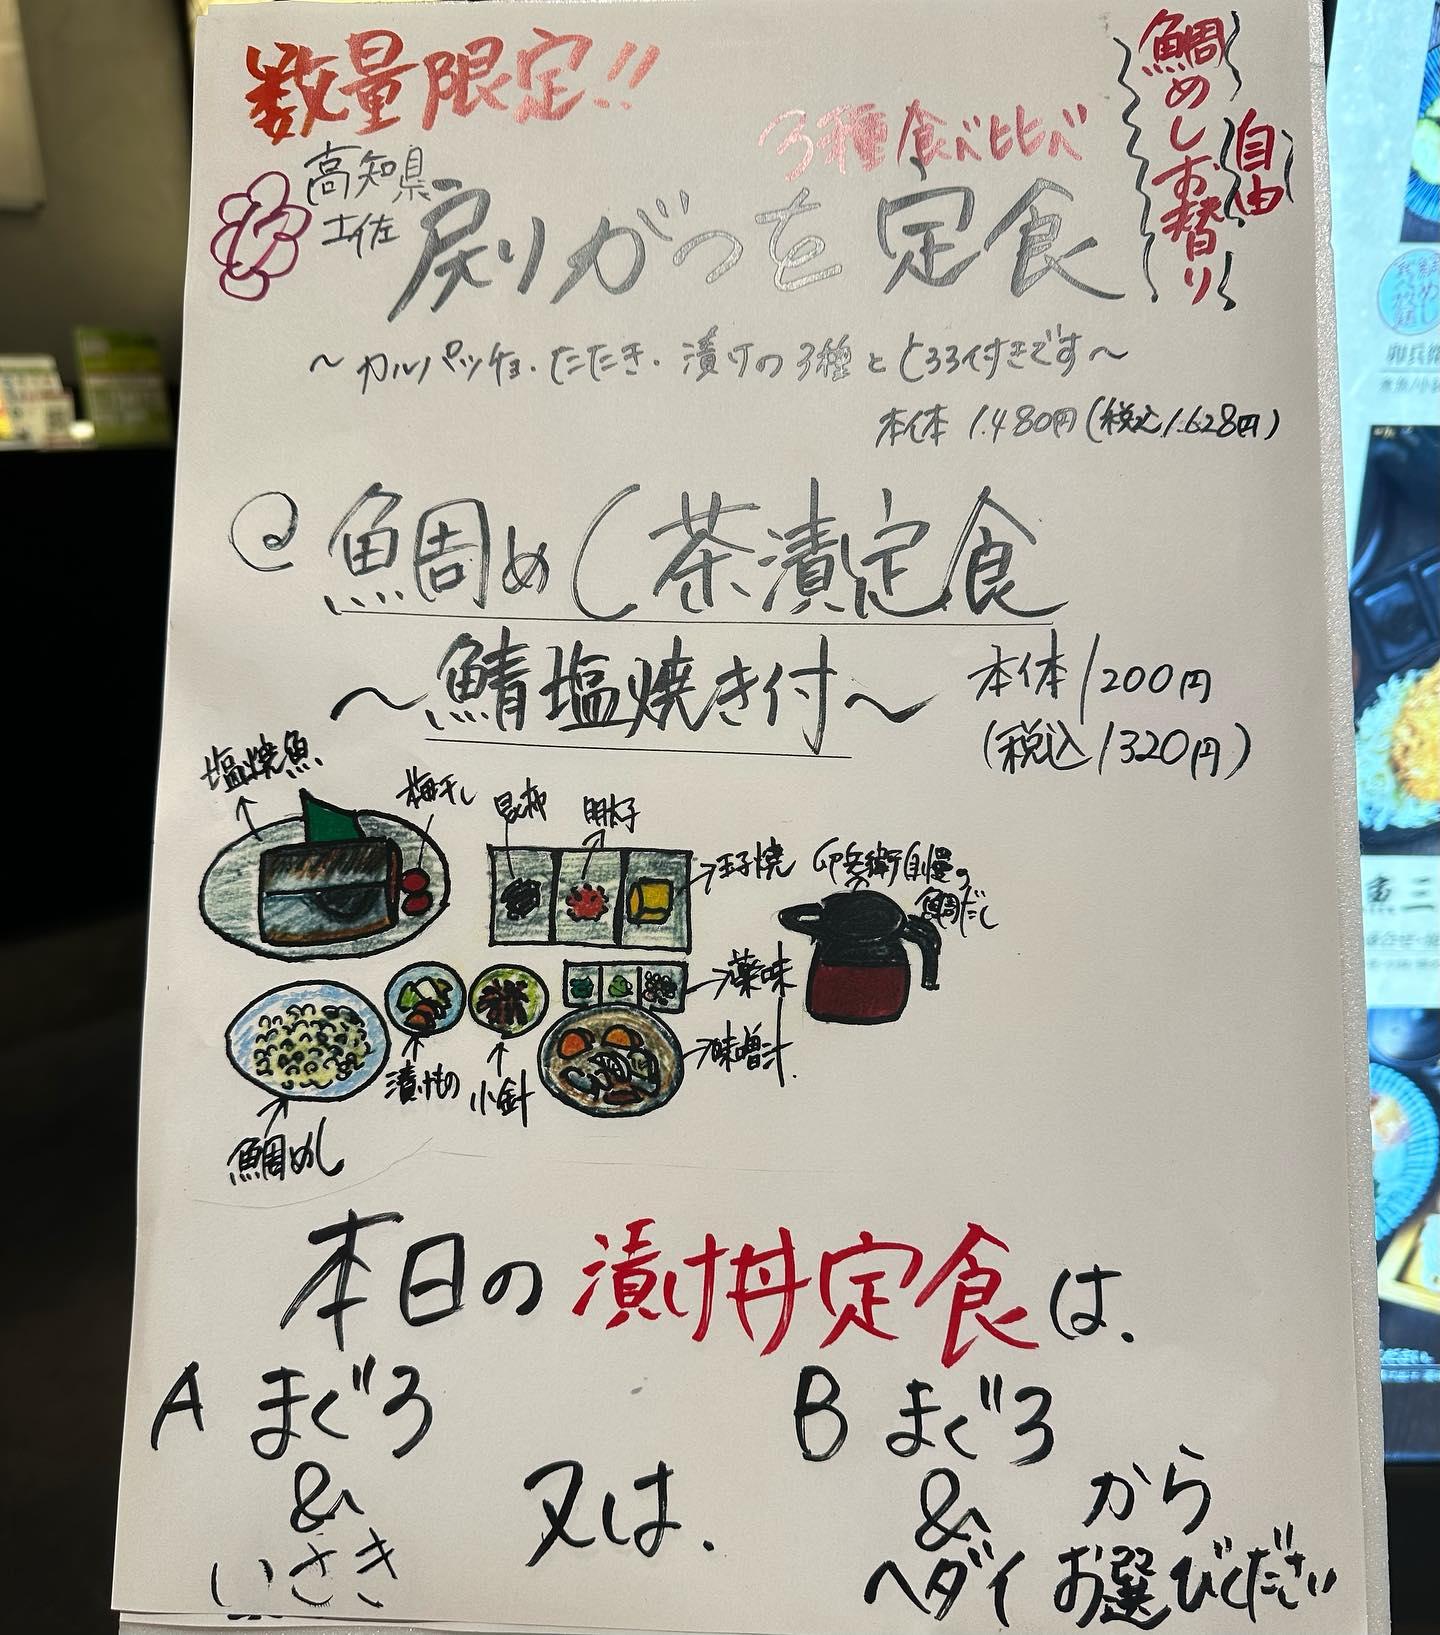 数量限定!!
鯛めしお替り
自由
3種食べ比べ
高知県
土佐
戻りがつを 定食
～カルパッチョ・たたき・漬けの3種ととろろ付きです～
本体 1,480円(税込1,628円)
鯛めし茶漬定食
～鯖塩焼き付～
本体1200円
(税込1320円)
塩焼魚
梅干し
昆布
明太子
玉子焼
卯兵衛自慢の
鯛だし
薬味
味噌汁
漬けもの
小鉢
鯛めし
本日の 漬け丼定食は、
A まぐろ
&
いさき
又は、
B まぐろ
&
ヘダイ
から
お選びください